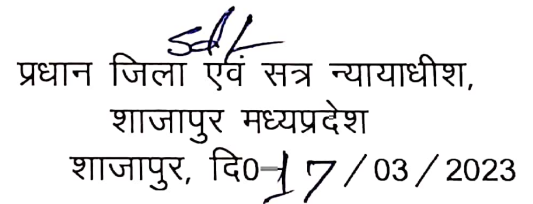 Sd/-
प्रधान जिला एवं सत्र न्यायाधीश,
शाजापुर मध्यप्रदेश
शाजापुर, दि0-17/03/2023